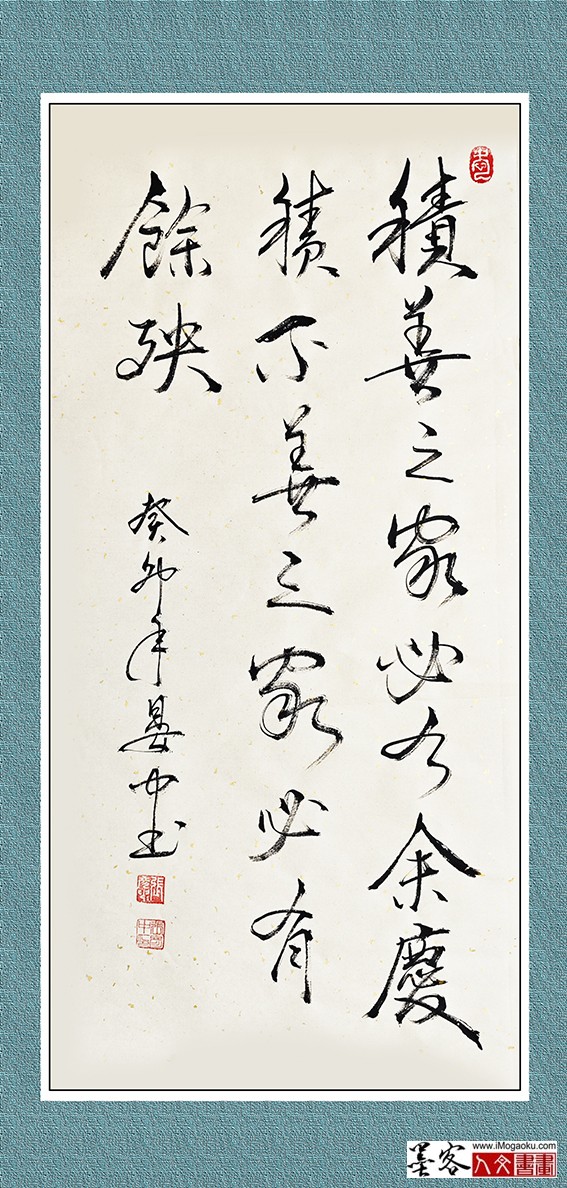 積善之家必有余慶
積不善之家必有
餘殃
癸卯年
墨客
www.iMogaoku.com
人文書畫